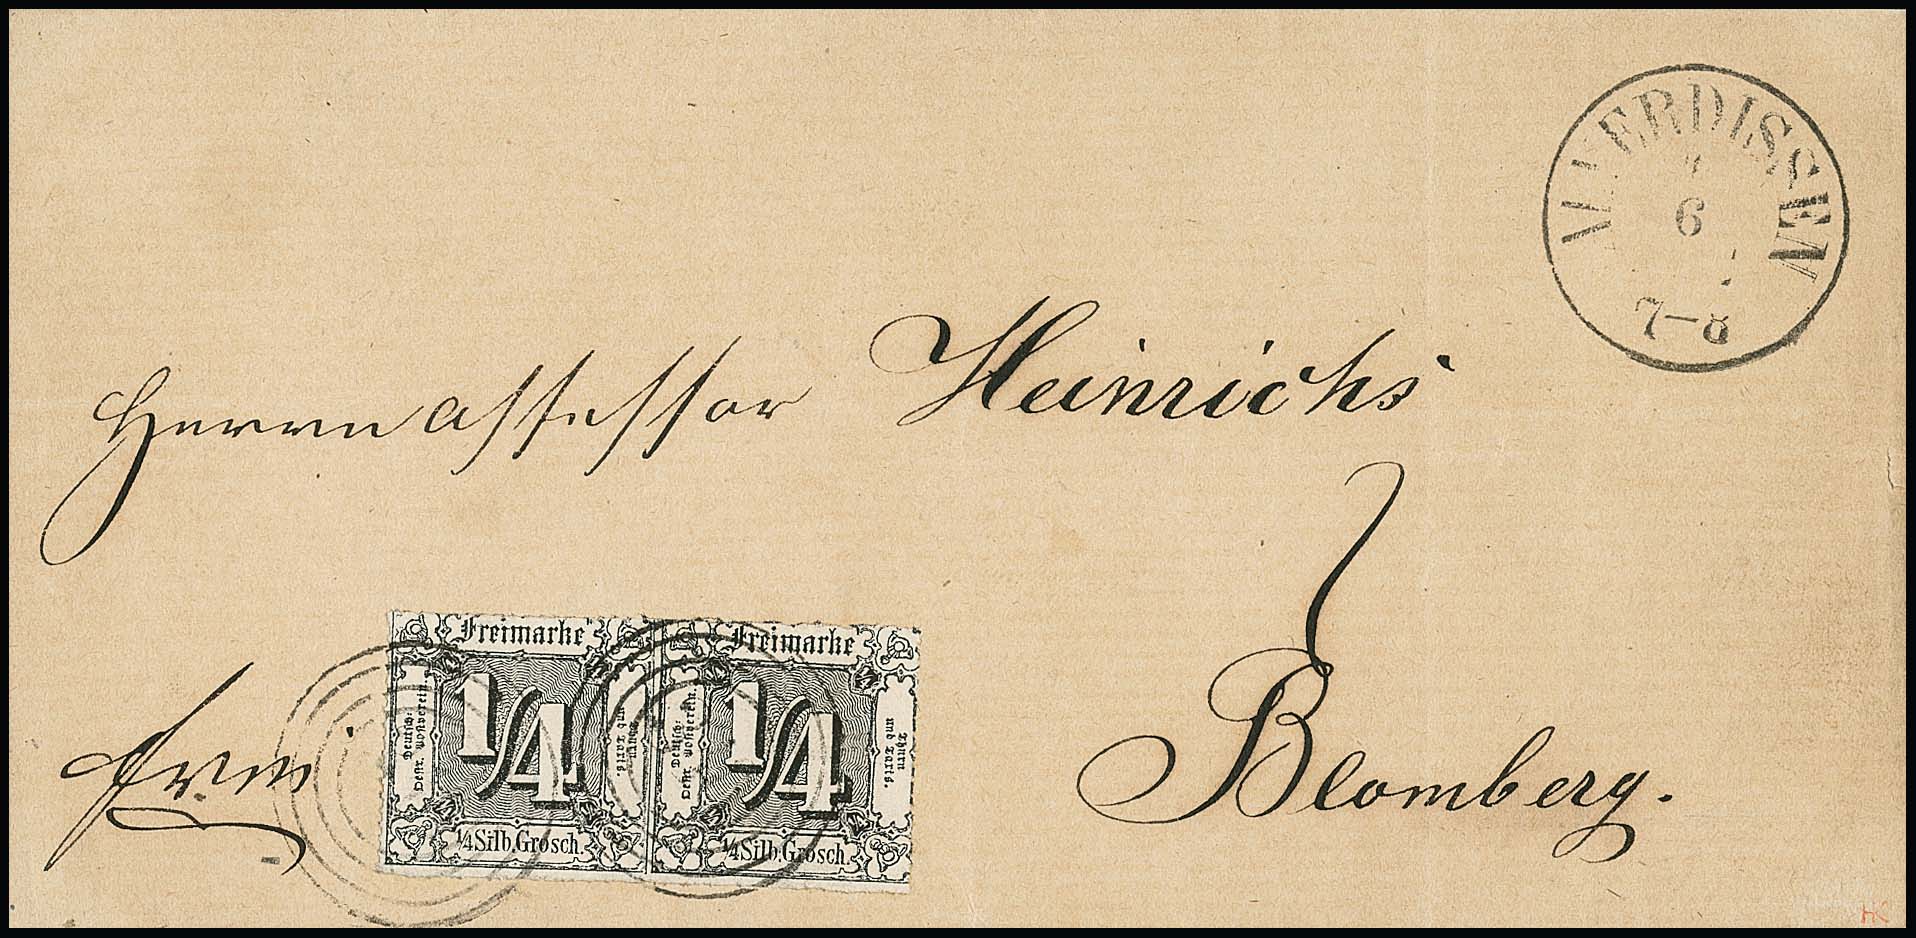 ALVERDISSEN
6
7-8
Herrn Assessor Heinrichs
Blomberg.
frei
Freimarke
1/4
Deutsch-Oestr. Postverein.
Thurn und Taxis.
1/4 Silb. Grosch.
Freimarke
1/4
Deutsch-Oestr. Postverein.
Thurn und Taxis.
1/4 Silb. Grosch.
HK